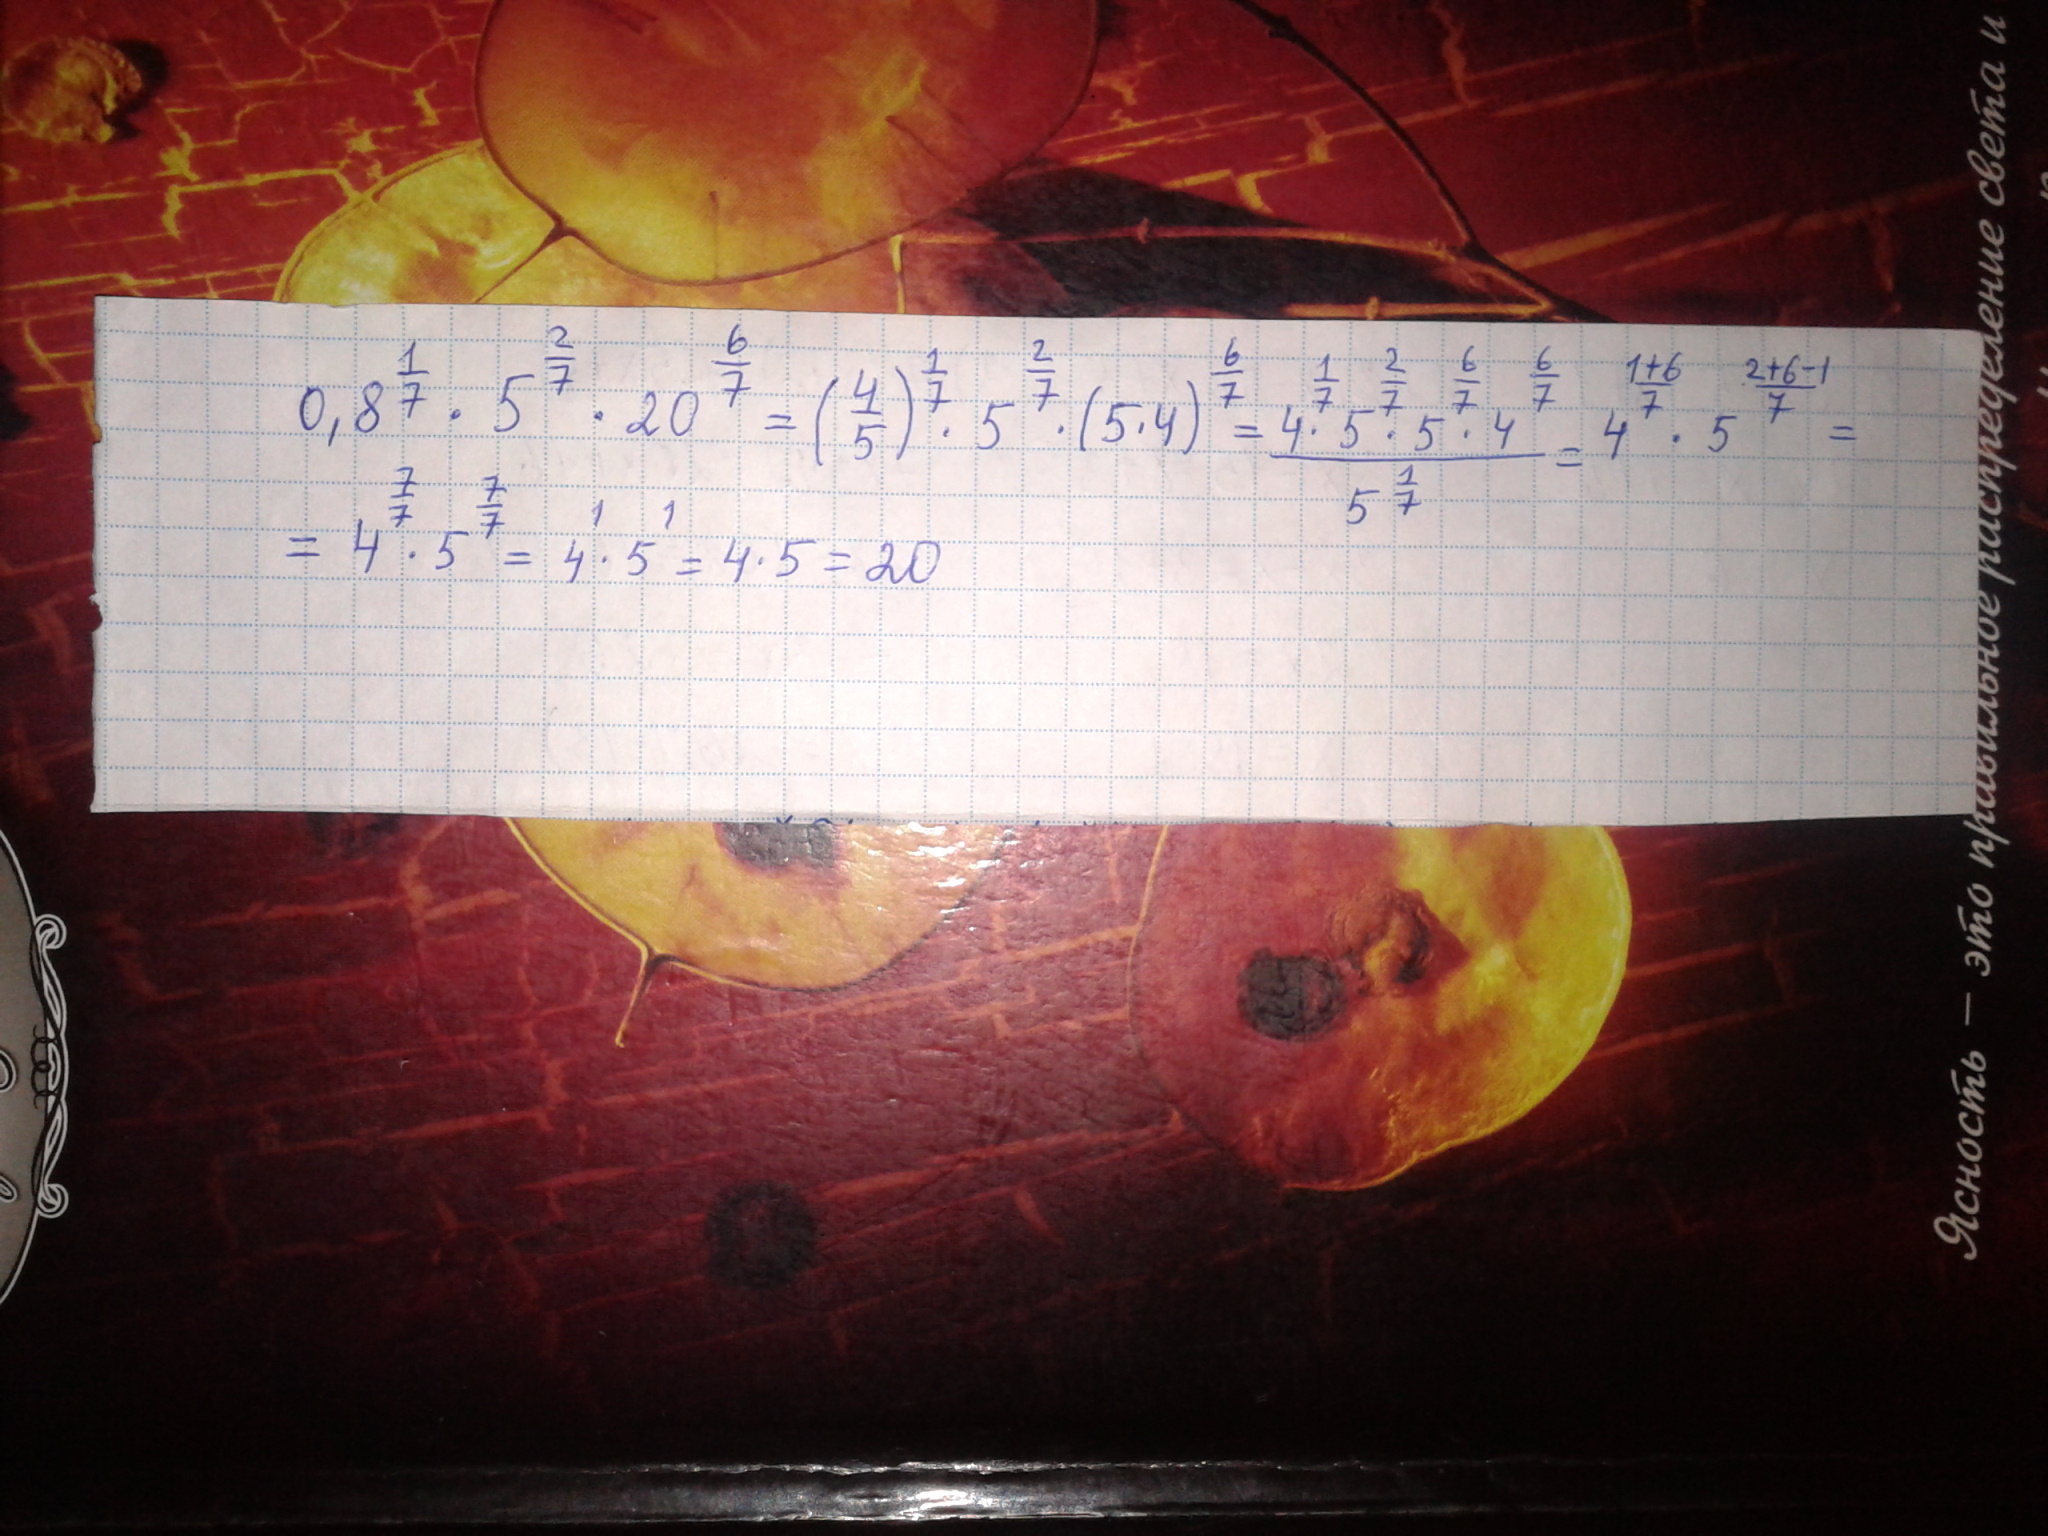 0,8^{1/7} · 5^{2/7} · 20^{6/7} = (4/5)^{1/7} · 5^{2/7} · (5·4)^{6/7} = (4^{1/7} · 5^{2/7} · 5^{6/7} · 4^{6/7}) / 5^{1/7} = 4^{(1+6)/7} · 5^{(2+6-1)/7} =
= 4^{7/7} · 5^{7/7} = 4^1 · 5^1 = 4·5 = 20
Ясность — это правильное распределение света и